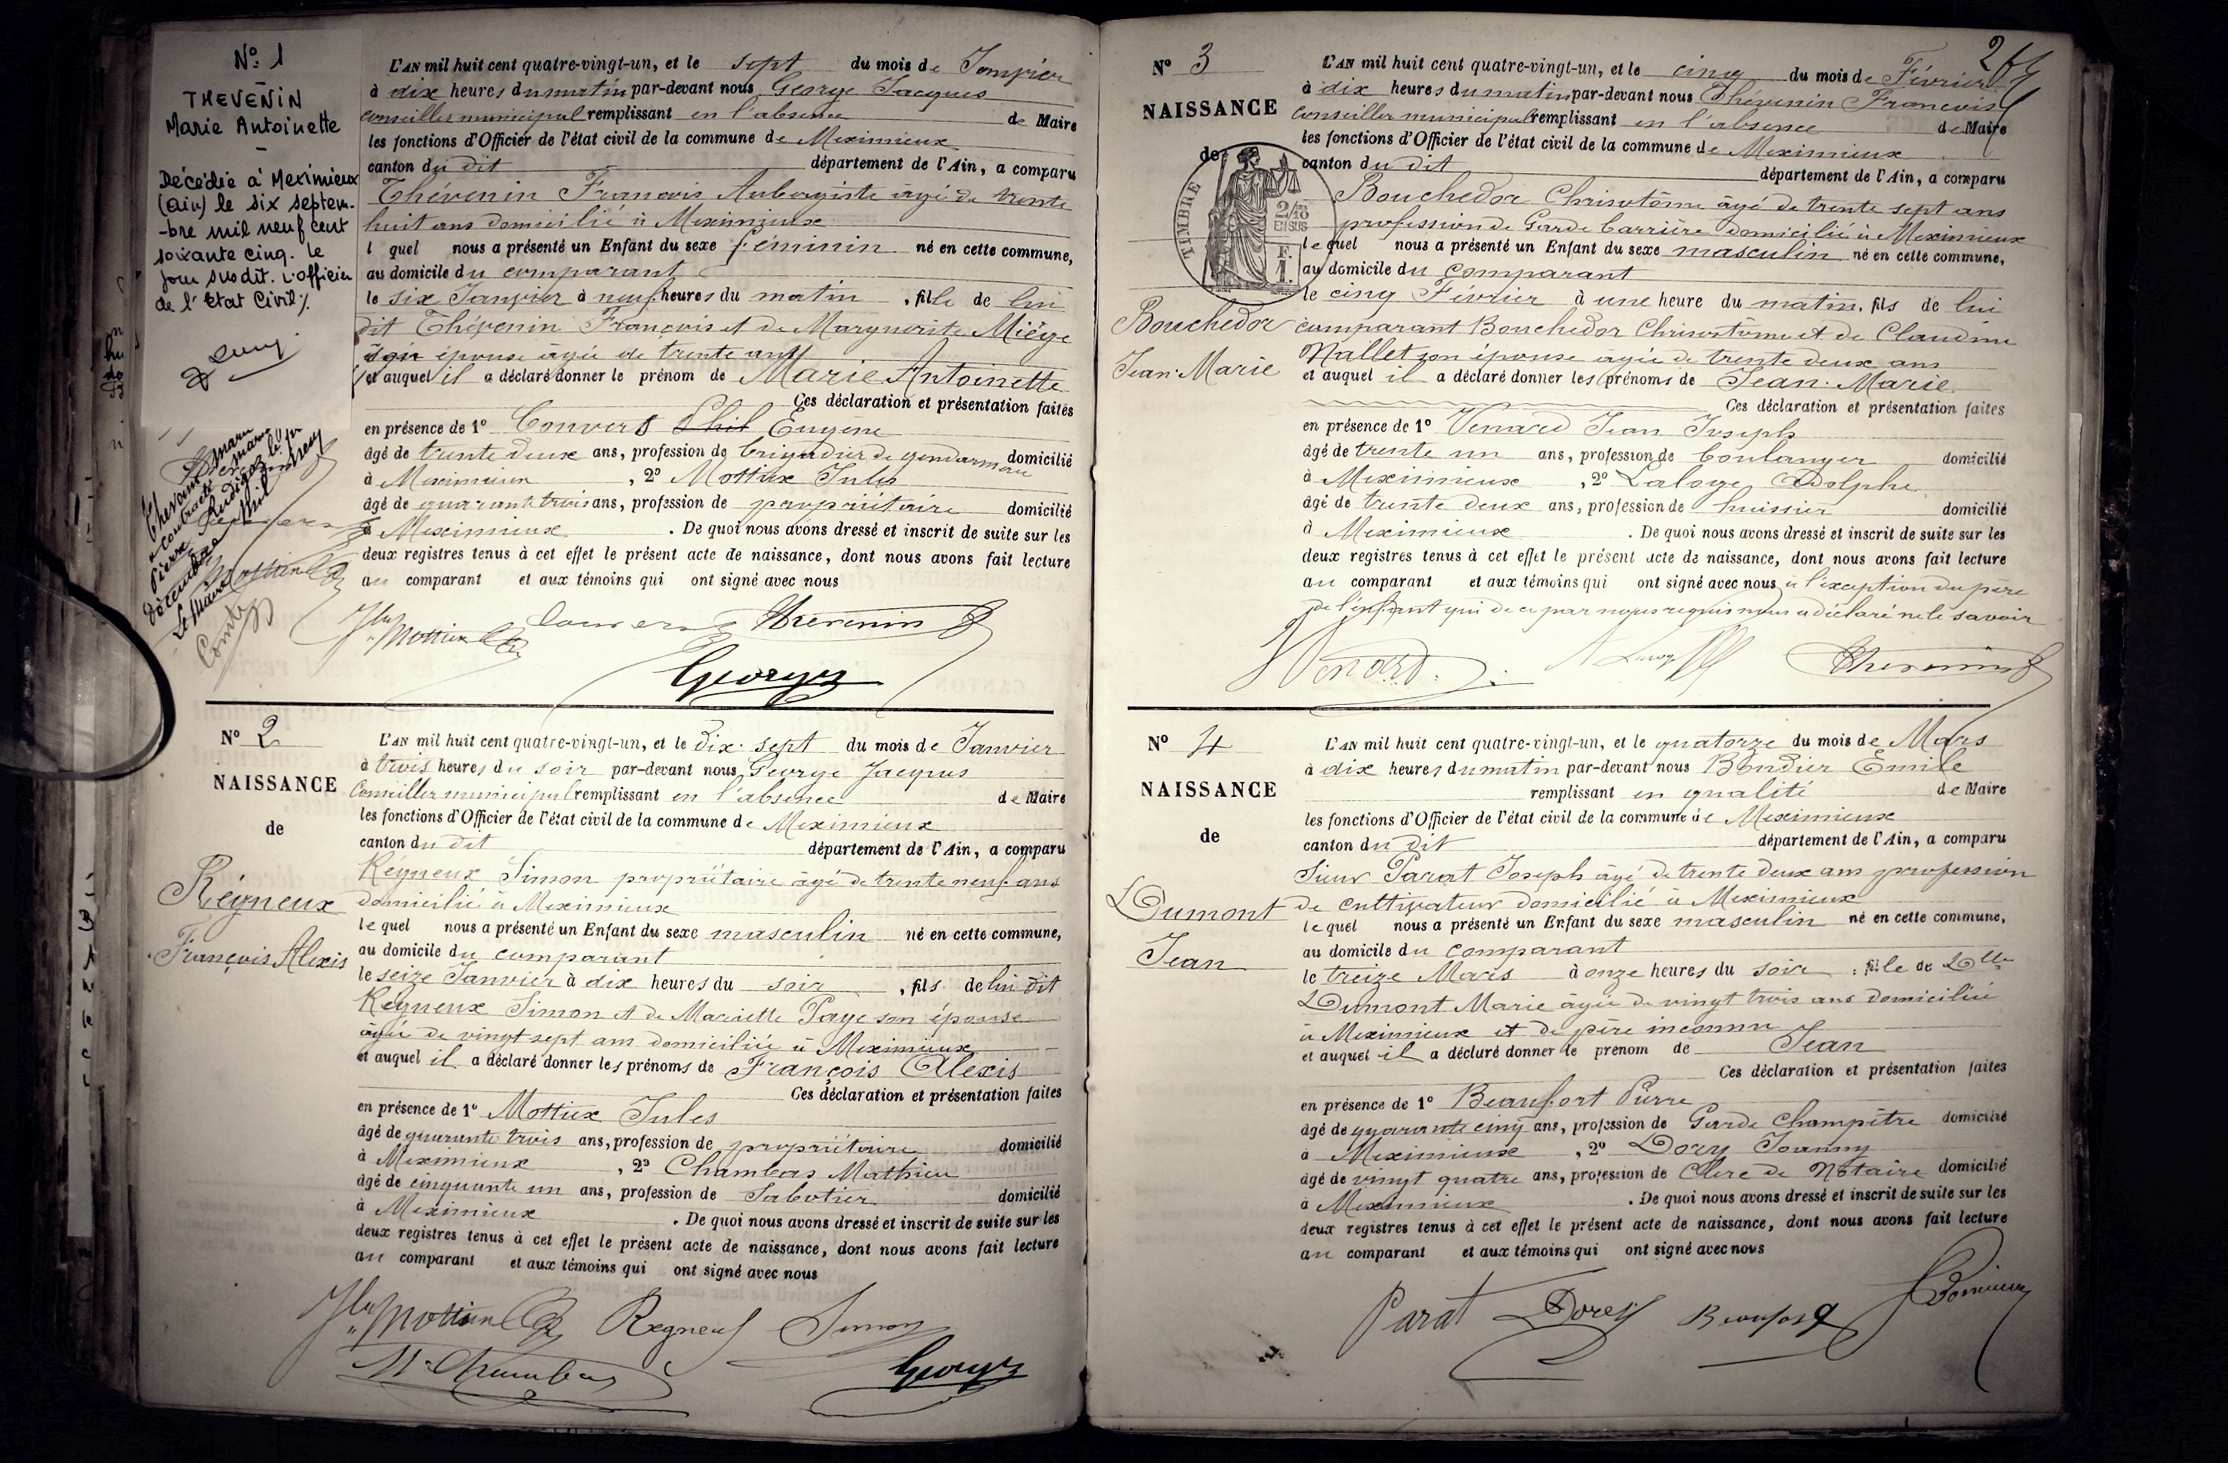 N° 1
THEVENIN
Marie Antoinette
Décédée à Meximieux
(Ain) le six septem-
-bre mil neuf cent
soixante cinq. le
jour susdit. L'officier
de l'Etat Civil /.
L'AN mil huit cent quatre-vingt-un, et le sept du mois de Janvier
à dix heures du matin par-devant nous George Jacques
Conseiller municipal remplissant en l'absence de Maire
les fonctions d'Officier de l'état civil de la commune de Meximieux
canton du dit département de l'Ain, a comparu
Thévenin François Aubergiste âgé de trente
huit ans domicilié à Meximieux
l quel nous a présenté un Enfant du sexe féminin né en cette commune,
au domicile du comparant
le six Janvier à neuf heures du matin , fille de lui
dit Thévenin François et de Marguerite Miége
son épouse âgée de trente ans
et auquel il a déclaré donner le prénom de Marie Antoinette
Ces déclaration et présentation faites
en présence de 1° Convert Phil Eugène
âgé de trente deux ans, profession de brigadier de gendarmerie domicilié
à Meximieux , 2° Mottux Jules
âgé de quarante trois ans, profession de propriétaire domicilié
à Meximieux . De quoi nous avons dressé et inscrit de suite sur les
deux registres tenus à cet effet le présent acte de naissance, dont nous avons fait lecture
au comparant et aux témoins qui ont signé avec nous
Thevenin
Georges
N° 2
NAISSANCE
de
Régneux
François Alexis
L'AN mil huit cent quatre-vingt-un, et le dix-sept du mois de Janvier
à trois heures du soir par-devant nous George Jacques
Conseiller municipal remplissant en l'absence de Maire
les fonctions d'Officier de l'état civil de la commune de Meximieux
canton du dit département de l'Ain, a comparu
Régneux Simon propriétaire âgé de trente neuf ans
domicilié à Meximieux
le quel nous a présenté un Enfant du sexe masculin né en cette commune,
au domicile du comparant
le seize Janvier à dix heures du soir , fils de lui dit
Régneux Simon et de Mariette Paye son épouse
âgée de vingt sept ans domiciliée à Meximieux
et auquel il a déclaré donner les prénoms de François Alexis
Ces déclaration et présentation faites
en présence de 1° Mottux Jules
âgé de quarante trois ans, profession de propriétaire domicilié
à Meximieux , 2° Chambas Mathieu
âgé de cinquante un ans, profession de Sabotier domicilié
à Meximieux . De quoi nous avons dressé et inscrit de suite sur les
deux registres tenus à cet effet le présent acte de naissance, dont nous avons fait lecture
au comparant et aux témoins qui ont signé avec nous
Regneux Simon
Georges
N° 3
NAISSANCE
de
TIMBRE
2/10
EN SUS
F.
1.
Bouchedor
Jean-Marie
L'AN mil huit cent quatre-vingt-un, et le cinq du mois de Février
à dix heures du matin par-devant nous Thévenin François
Conseiller municipal remplissant en l'absence de Maire
les fonctions d'Officier de l'état civil de la commune de Meximieux
canton du dit département de l'Ain, a comparu
Bouchedor Chrisotôme âgé de trente sept ans
profession de Garde barrière domicilié à Meximieux
le quel nous a présenté un Enfant du sexe masculin né en cette commune,
au domicile du comparant
le cinq Février à une heure du matin, fils de lui
comparant Bouchedor Chrisostôme et de Claudine
Nallet son épouse âgée de trente deux ans
et auquel il a déclaré donner les prénoms de Jean-Marie
Ces déclaration et présentation faites
en présence de 1° Venard Jean Joseph
âgé de trente un ans, profession de boulanger domicilié
à Meximieux , 2° Laloge Adolphe
âgé de trente deux ans, profession de huissier domicilié
à Meximieux . De quoi nous avons dressé et inscrit de suite sur les
deux registres tenus à cet effet le présent acte de naissance, dont nous avons fait lecture
au comparant et aux témoins qui ont signé avec nous à l'exception du père
de l'enfant qui de ce par nous requis nous a déclaré ne le savoir
Venard
Thevenin
N° 4
NAISSANCE
de
Dumont
Jean
L'AN mil huit cent quatre-vingt-un, et le quatorze du mois de Mars
à dix heures du matin par-devant nous Bondier Emile
remplissant en qualité de Maire
les fonctions d'Officier de l'état civil de la commune de Meximieux
canton du dit département de l'Ain, a comparu
Sieur Parat Joseph âgé de trente deux ans profession
de cultivateur domicilié à Meximieux
le quel nous a présenté un Enfant du sexe masculin né en cette commune,
au domicile du comparant
le treize Mars à onze heures du soir , file de Dlle
Dumont Marie âgée de vingt trois ans domiciliée
à Meximieux et de père inconnu
et auquel il a déclaré donner le prénom de Jean
Ces déclaration et présentation faites
en présence de 1° Beaufort Pierre
âgé de quarante cinq ans, profession de Garde Champêtre domicilié
à Meximieux , 2° Dory Joanny
âgé de vingt quatre ans, profession de Clerc de Notaire domicilié
à Meximieux . De quoi nous avons dressé et inscrit de suite sur les
deux registres tenus à cet effet le présent acte de naissance, dont nous avons fait lecture
au comparant et aux témoins qui ont signé avec nous
Parat Dorey Beaufort